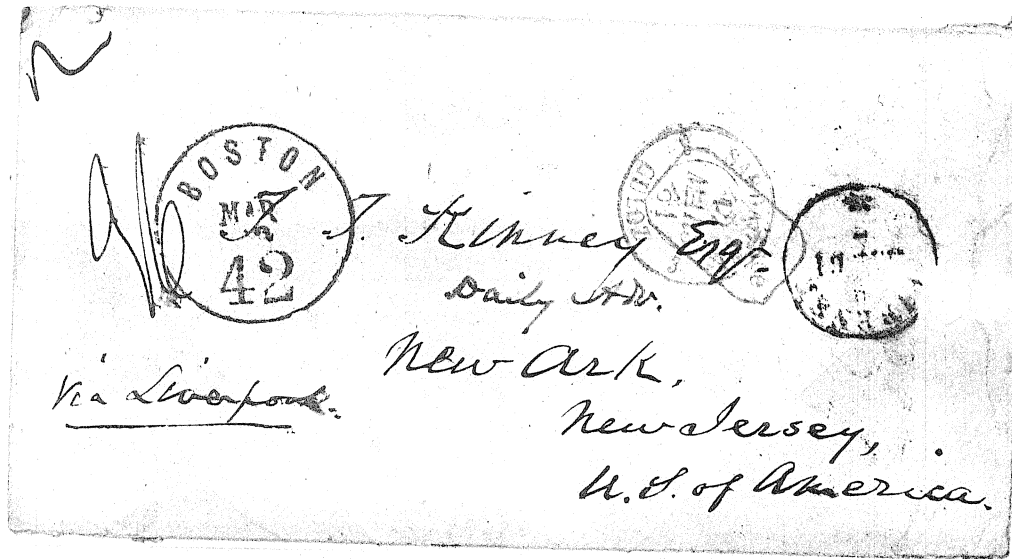 BOSTON
MAR
42
T. T. Kinney Esqr.
Daily Adv.
New Ark,
New Jersey,
U.S. of America.
Via Liverpool.
19